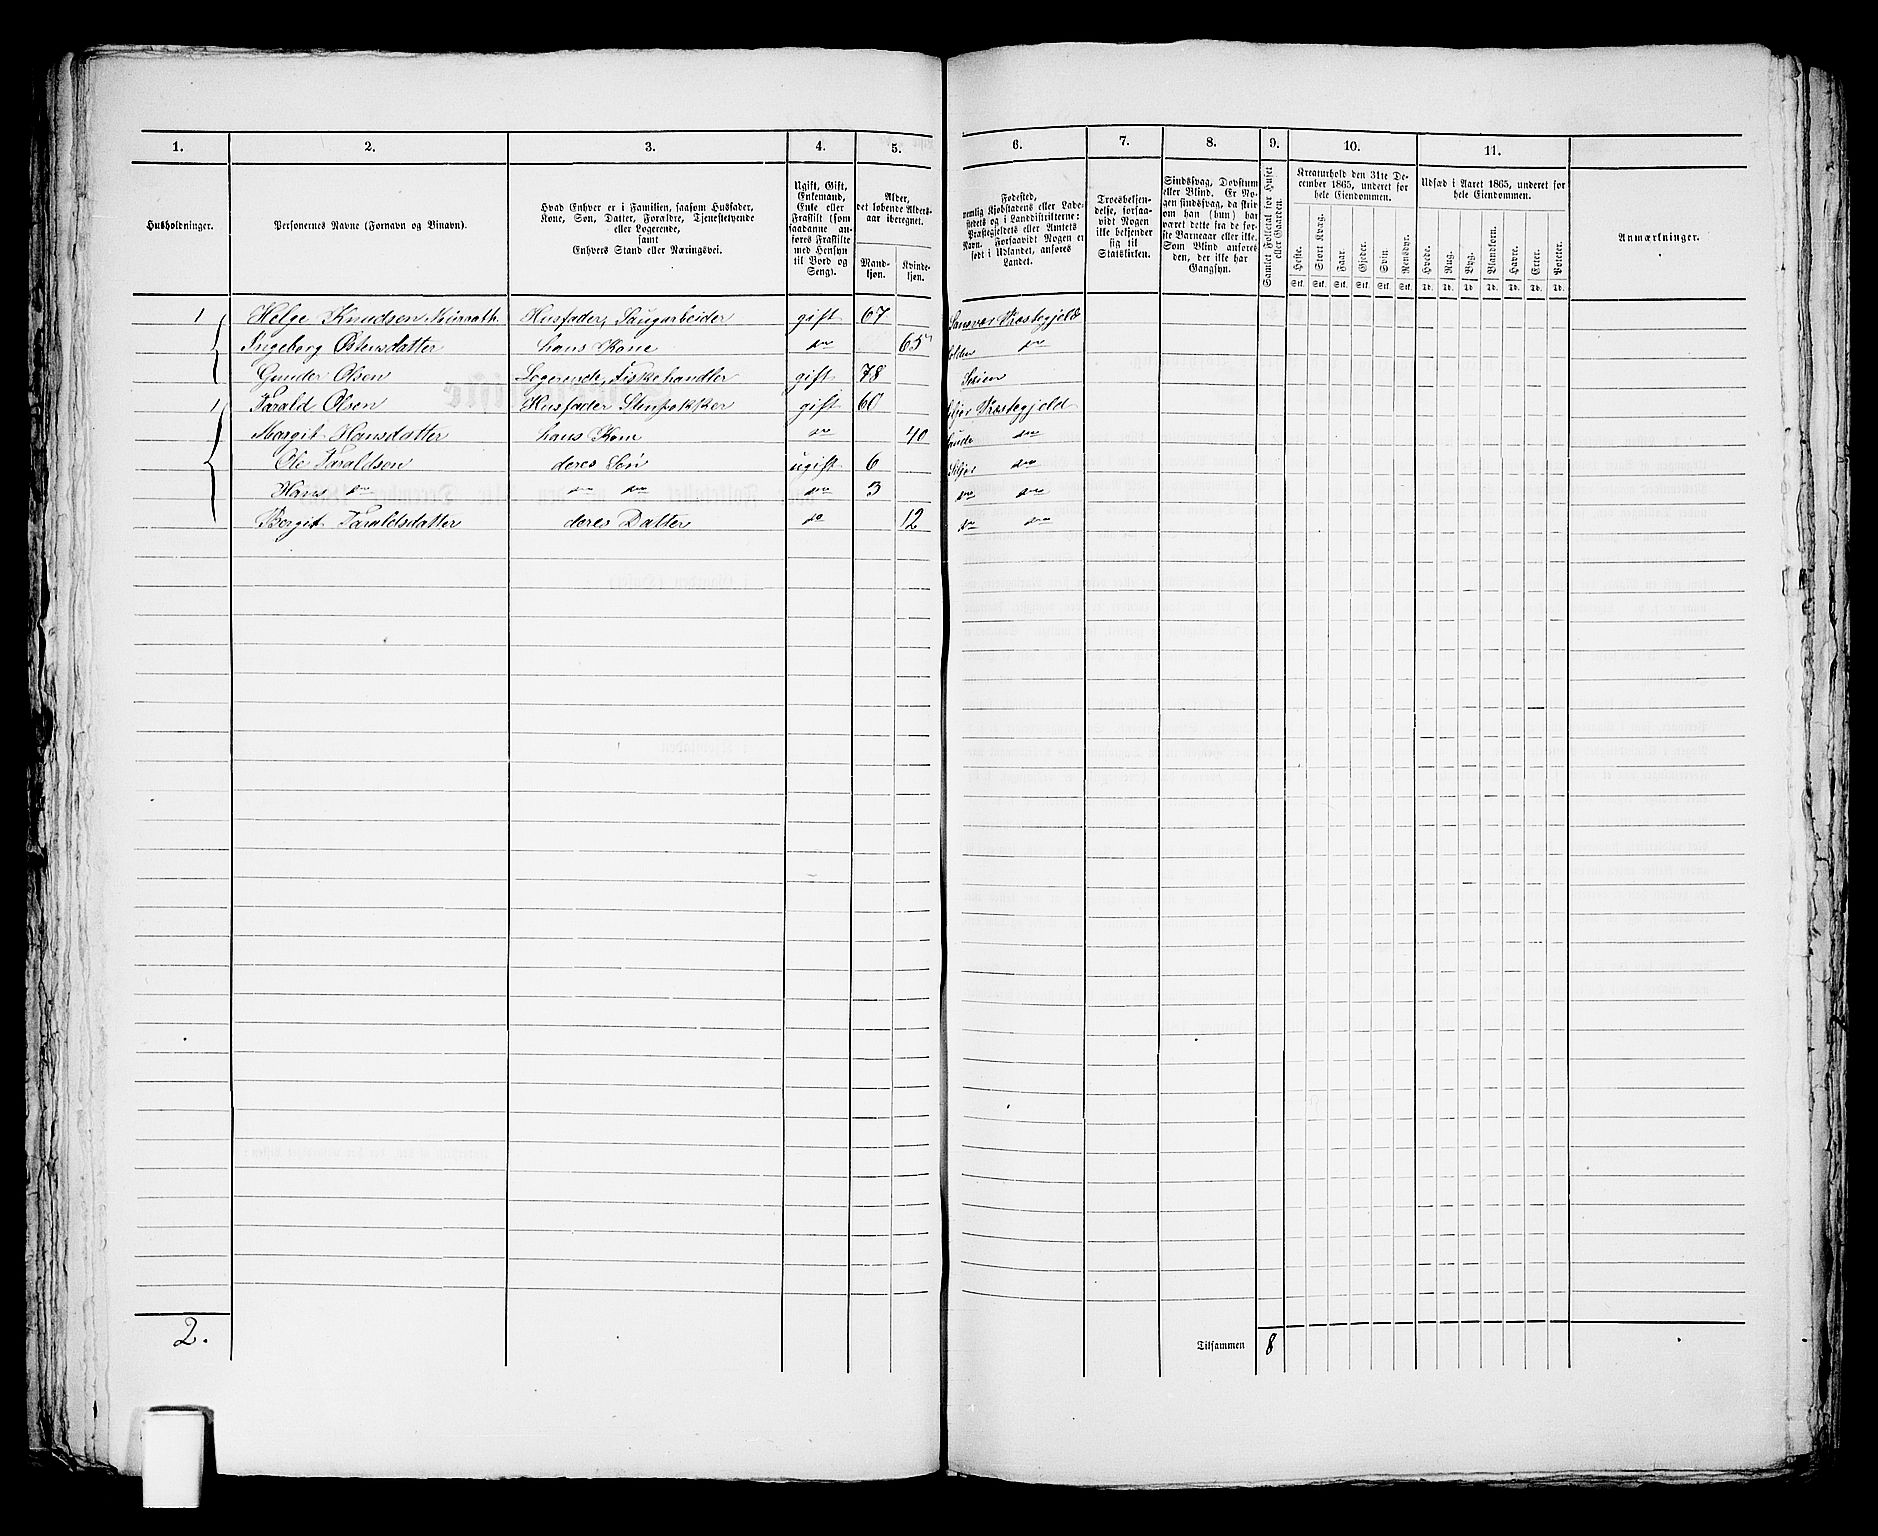 1. 2. 3. 4. 5. 6. 7. 8. 9. 10. 11.
Husholdninger.
Personernes Navne (Fornavn og Binavn).
Hvad Enhver er i Familien, saasom Husfader,
Kone, Søn, Datter, Forældre, Tjenestetyende
eller Logerende,
samt
Enhvers Stand eller Næringsvei.
Ugift, Gift,
Enkemand,
Enke eller
Fraskilt (som
saadanne an-
føres Fraskilte
med Hensyn
til Bord og
Seng).
Alder,
det løbende Alders-
aar iberegnet.
Mand-
kjøn.
Kvinde-
kjøn.
Fødested,
nemlig Kjøbstadens eller Lade-
stedets og i Landdistrikterne:
Præstegjeldets eller Amtets
Navn. Forsaavidt Nogen er
født i Udlandet, anføres
Landet.
Troesbekjen-
delse, forsaa-
vidt Nogen
ikke bekjender
sig til
Statskirken.
Sindssvag, Døvstum
eller Blind. Er No-
gen sindssvag, da skri-
ves om han (hun) har
været dette fra de før-
ste Barneaar eller ikke.
Som Blind anføres
den, der ikke har
Gangsyn.
Samlet Folketal for Huset
eller Gaarden.
Kreaturhold den 31te De-
cember 1865, underet for
hele Eiendommen.
Heste. Stort Kvæg. Faar. Gjeder. Svin. Rensdyr.
Stk. Stk. Stk. Stk. Stk. Stk.
Udsæd i Aaret 1865, underet for
hele Eiendommen.
Hvede. Rug. Byg. Blandkorn. Havre. Erter. Poteter.
Td. Td. Td. Td. Td. Td. Td.
Anmærkninger.
1 Helge Knudsen Husfader, Saugarbeider gift 67 Sansvær Præstegjeld
Ingeborg Østensdatter hans Kone do 65 Holden do
Gunder Olsen Logerende, Fiskehandler gift 78 Skien
1 Tarald Olsen Husfader Stenpikker gift 60 Siljør Præstegjeld
Margit Hansdatter hans Kone do 40 Saude do
Ole Taraldsen deres Søn ugift 6 Siljør do
Hans do do do do 3 do do
Bergit Taraldsdatter deres Datter do 12 do do
2.
Tilsammen 8